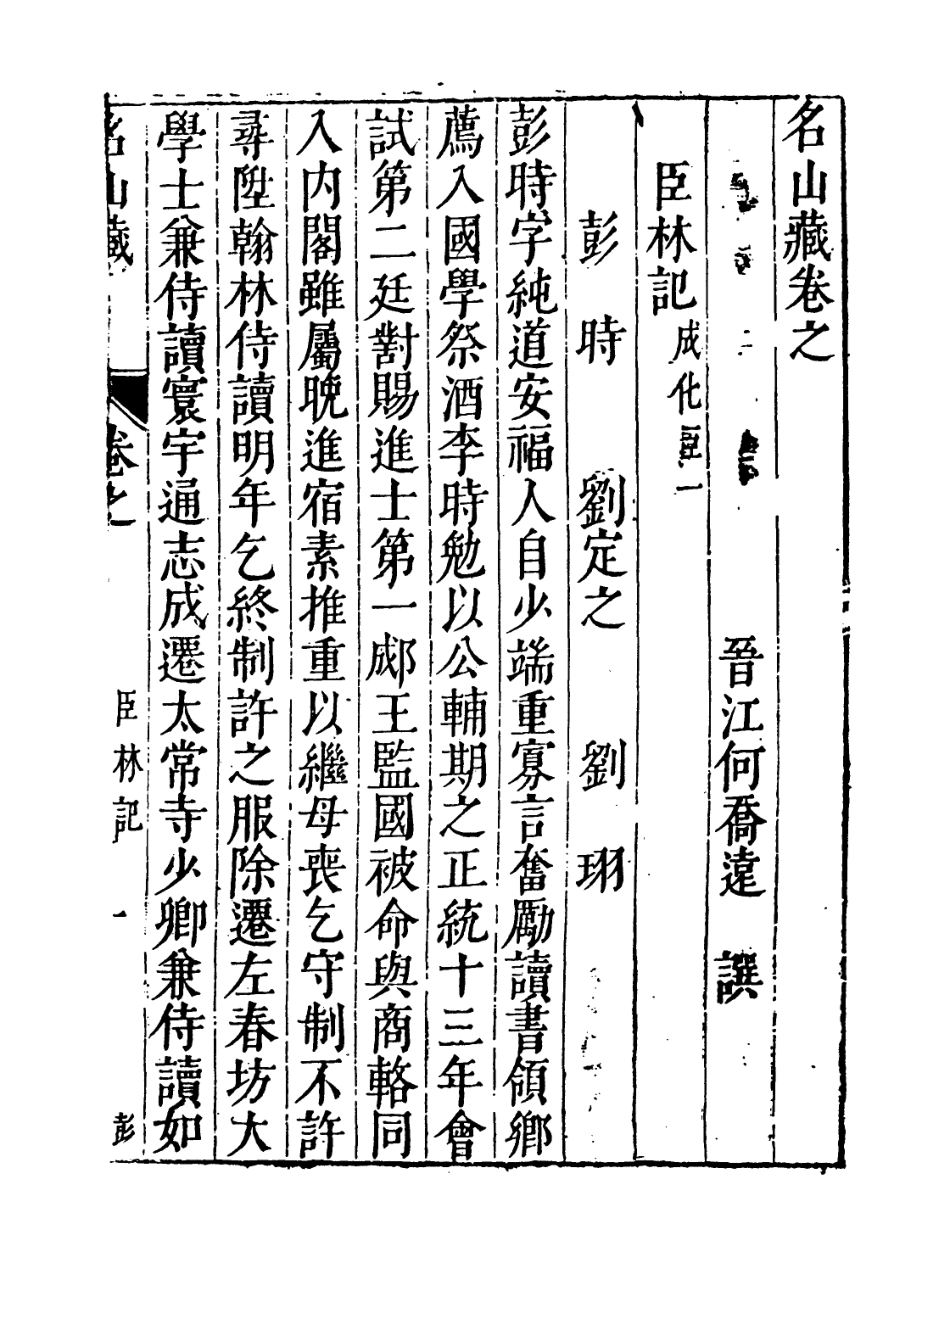 名山藏卷之
晉江何喬遠　譔
臣林記成化臣一
彭　時　　劉定之　　劉　珝
彭時字純道安福人自少端重寡言奮勵讀書領鄉
薦入國學祭酒李時勉以公輔期之正統十三年會
試第二廷對賜進士第一郕王監國被命與商輅同
入內閣雖屬晚進宿素推重以繼母喪乞守制不許
尋陞翰林侍讀明年乞終制許之服除遷左春坊大
學士兼侍讀寰宇通志成遷太常寺少卿兼侍讀如
名山藏　卷之　臣林記　一　彭